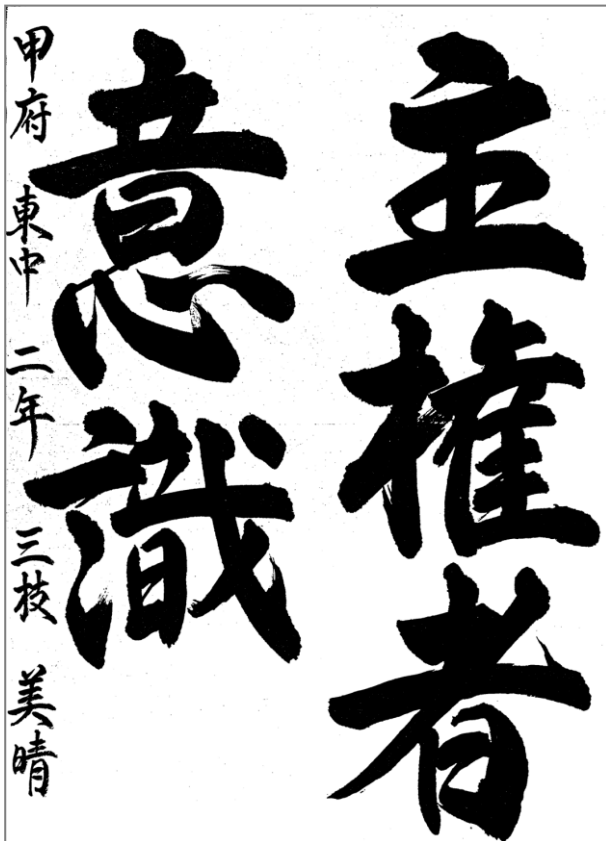 主権者
意識
甲府 東中 二年 三枝 美晴